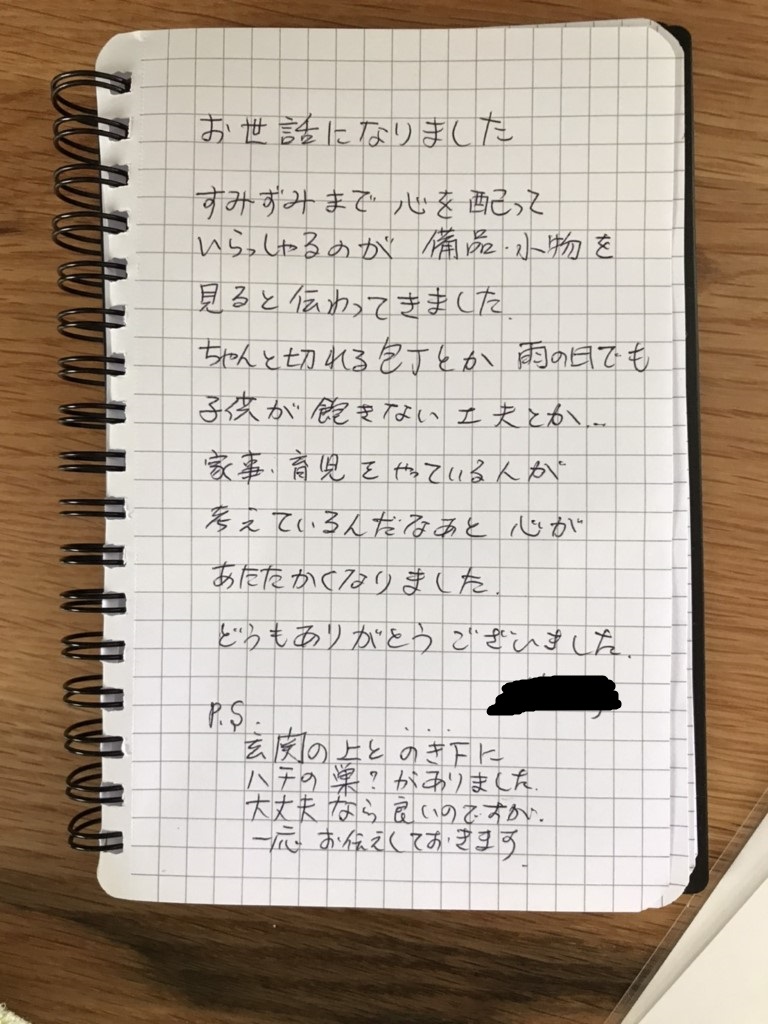 お世話になりました
すみずみまで 心を配って
いらっしゃるのが 備品・小物を
見ると伝わってきました.
ちゃんと切れる包丁とか 雨の日でも
子供が 飽きない 工夫とか...
家事・育児をやっている人が
考えているんだなあと 心が
あたたかくなりました.
どうもありがとう ございました.
P.S.
玄関の上と のき下に
ハチの 巣? がありました.
大丈夫 なら 良いのですが.
一応 お伝えしておきます.